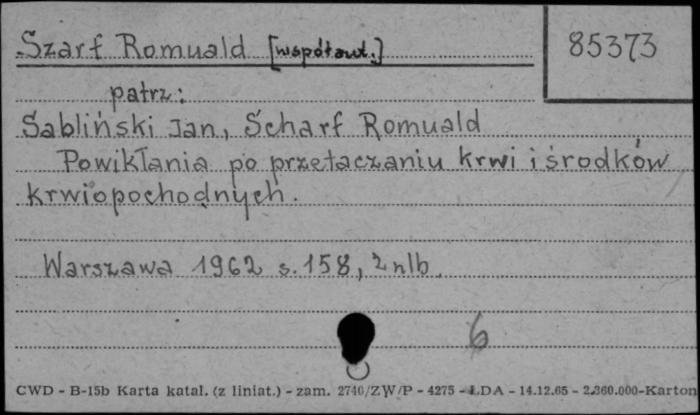 Szarf Romuald [współaut.]
85373
patrz:
Sabliński Jan, Scharf Romuald
Powikłania po przetaczaniu krwi i środków
krwiopochodnych.
Warszawa 1962 s. 158, 2 nlb.
6
CWD - B-15b Karta katal. (z liniat.) - zam. 2740/ZW/P - 4275 - ŁDA - 14.12.65 - 2.360.000-Karton